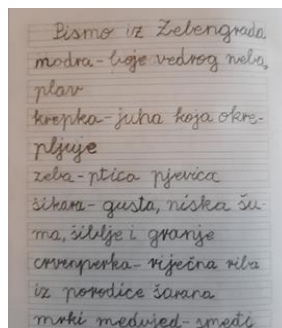 Pismo iz Zebengrada
modra - boje vedrog neba,
plav
krepka - juha koja okre-
pljuje
zeba - ptica pjevica
šikara - gusta, niska šu-
ma, šiblje i granje
crvenperka - riječna riba
iz porodice šarana
mrki medvjed - smeđi